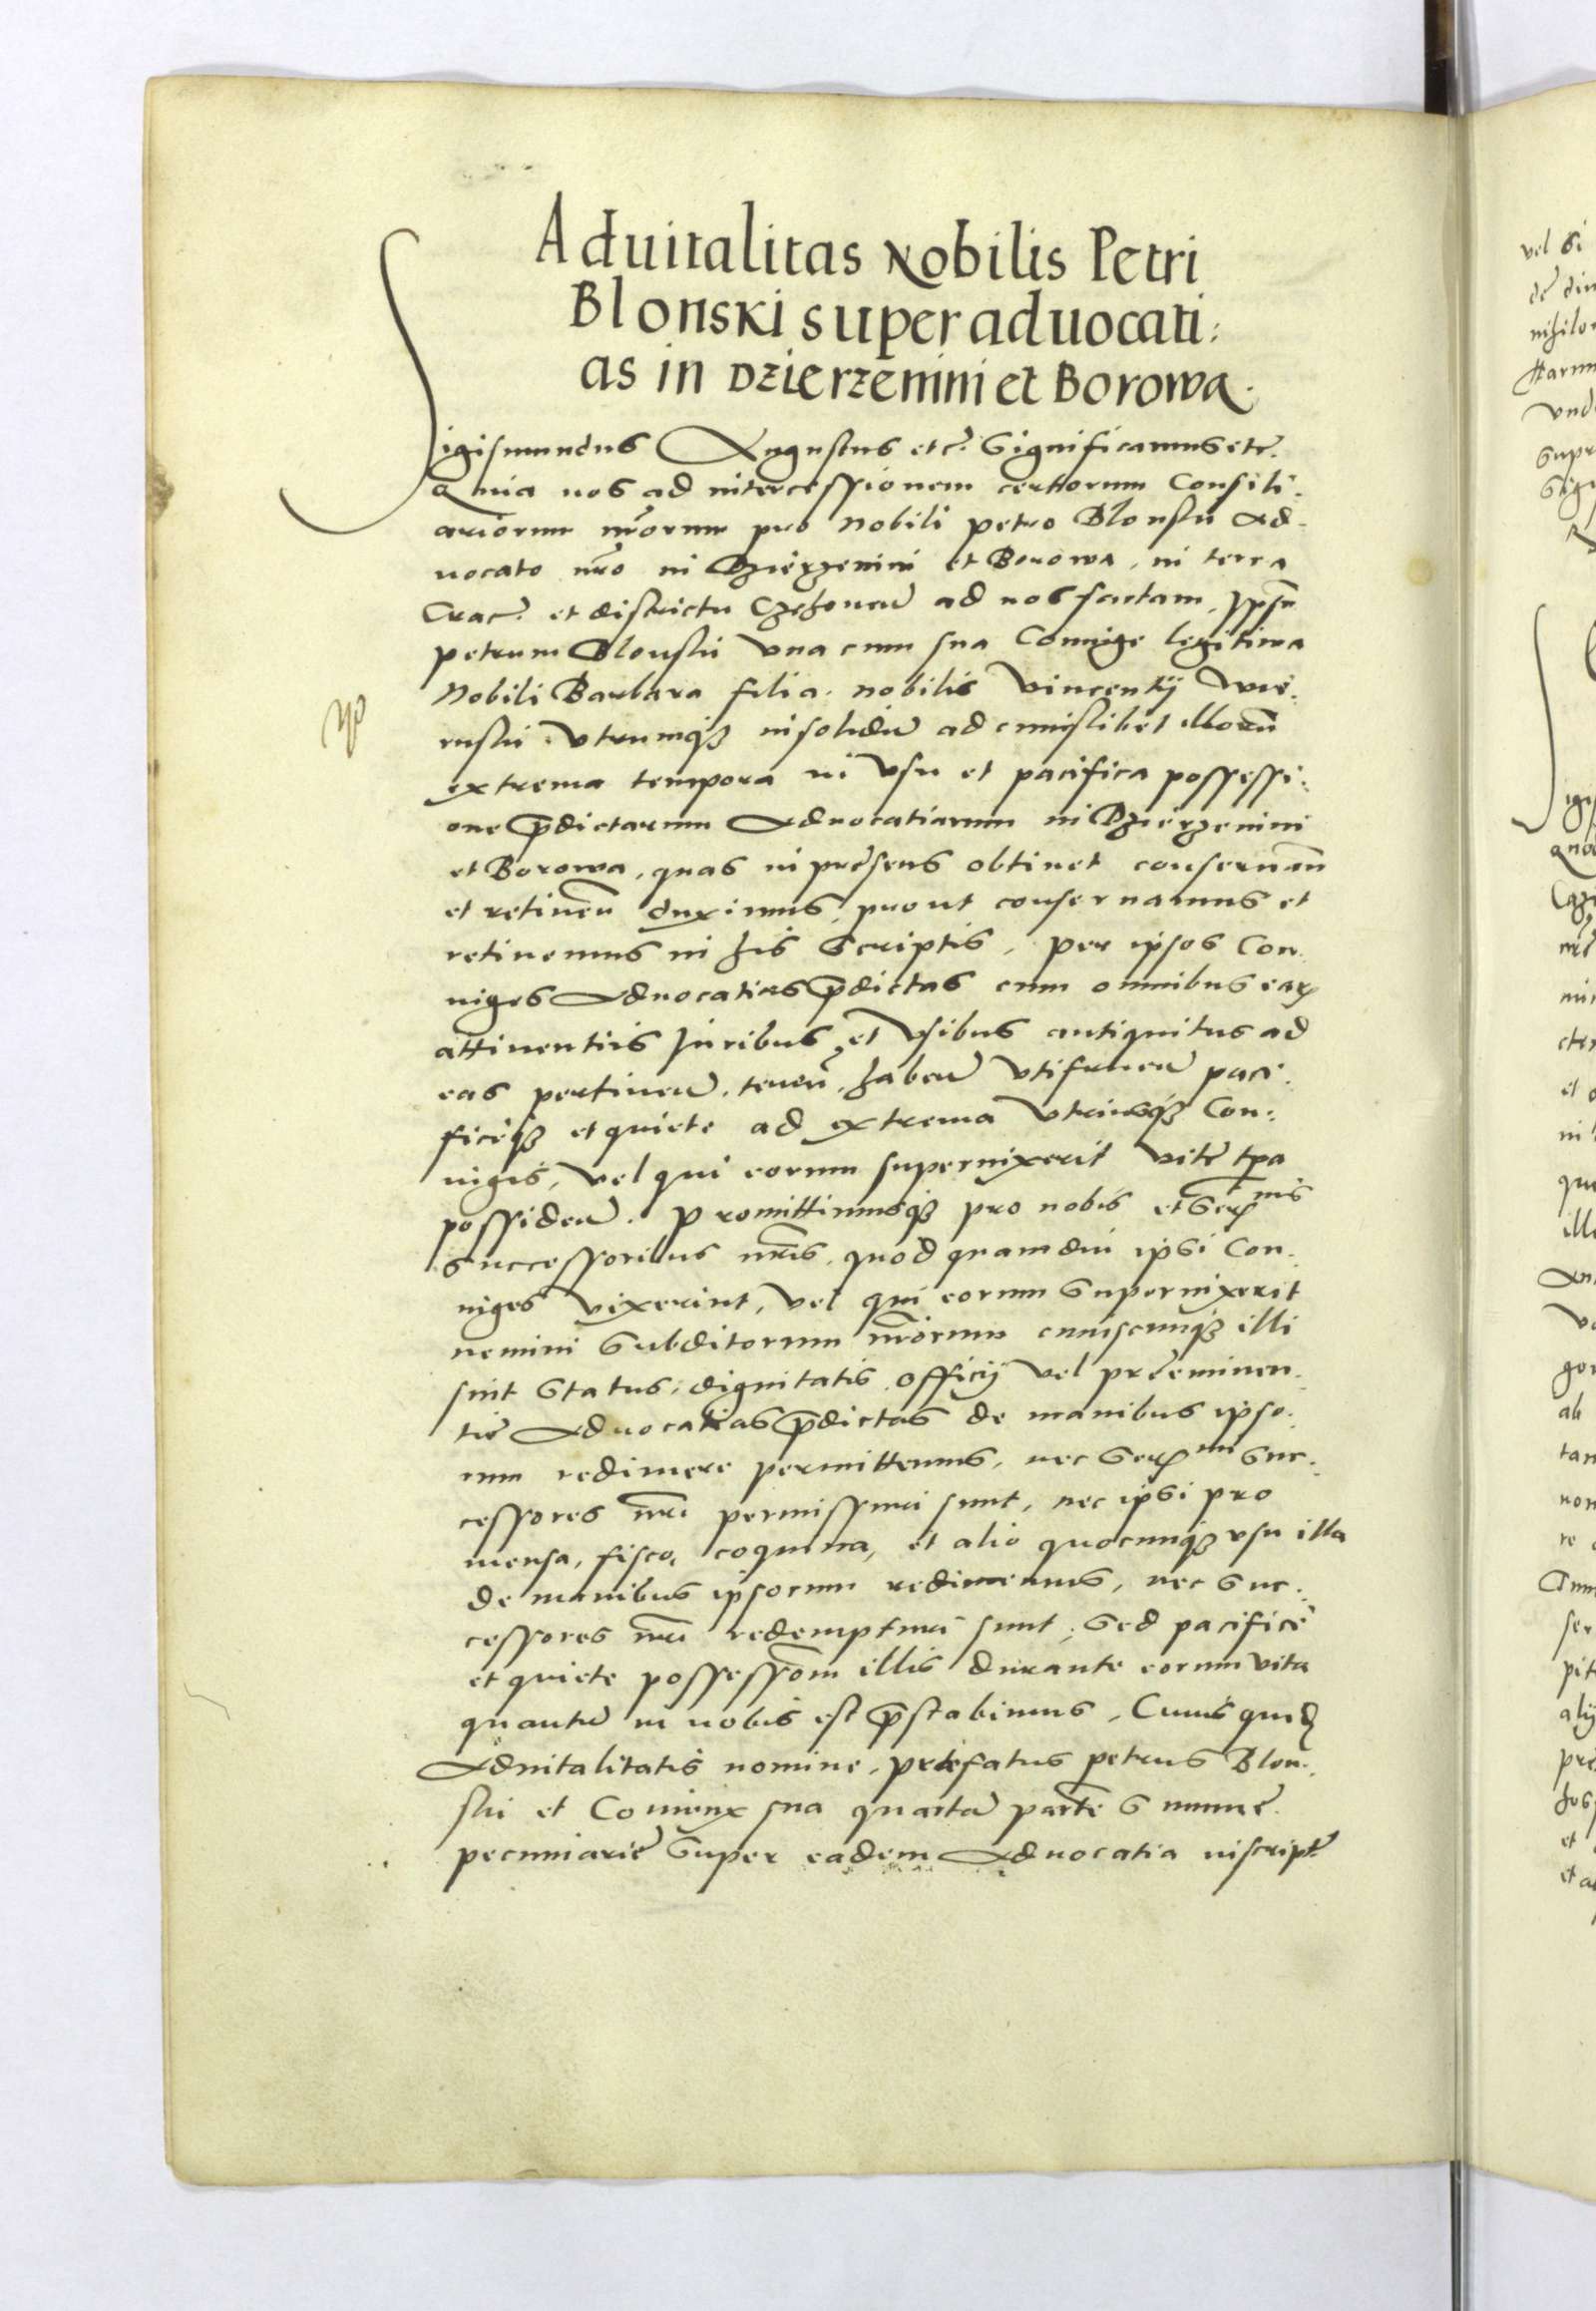 Aduitalitas Nobilis Petri
Blonski super aduocati:
as in Dzierzenini et Borowa.
Sigismundus Augustus etc. Significamus etc.
Quia nos ad intercessionem certiorum Consili:
ariorum nrorum pro Nobili petro Blonski Ad:
uocato nro in Dzierzenini et Borowa, in terra
Crac. et districtu Czchouien ad nos factam, ipsu
petrum Blonski vna cum sua Coniuge legitima
Nobili Barbara filia nobilis Vincentij
vtrumq insolidu ad cuiuslibet illoru
extrema tempora in vsu et pacifica possessi:
one pdictarum Aduocatiarum in Dzierzenini
et Borowa, quas in presens obtinet conseruan
et retinen duximus, prout conseruamus et
retinemus in his scriptis, per ipsos Con
iuges Aduocatias pdictas cum omnibus ear
attinentiis Iuribus et vsibus antiquitus ad
eas pertinen, tenen, haben vtifruen paci:
ficeq et quiete ad extrema vtriusq Con:
iugis, vel qui eorum superuixerit vite tpa
possiden. Promittimusq pro nobis et Ser mis
Successoribus nris, quod quamdiu ipsi Con:
iuges vixerint, vel qui eorum Superuixerit
nemini Subditorum nrorum cuiuscunq illi
sint Status, dignitatis officij vel preeminen:
tie Aduocatias pdictas de manibus ipso:
rum redimere permittemus, nec Ser mi Suc:
cessores nri permissuri sunt, nec ipsi pro
mensa, fisco, coquina, et alio quocunq vsu illa
de manibus ipsorum redimemus, nec Suc:
cessores nri redempturi sunt, Sed pacifice
et quiete possessiom illis durante eorum vita
quantu in nobis est pstabimus, Cuius quid
Aduitalitatis nomine, prefatus petrus Blon:
ski et Coniunx sua quarta parte Summe
pecuniarie Super eadem Aduocatia inscript